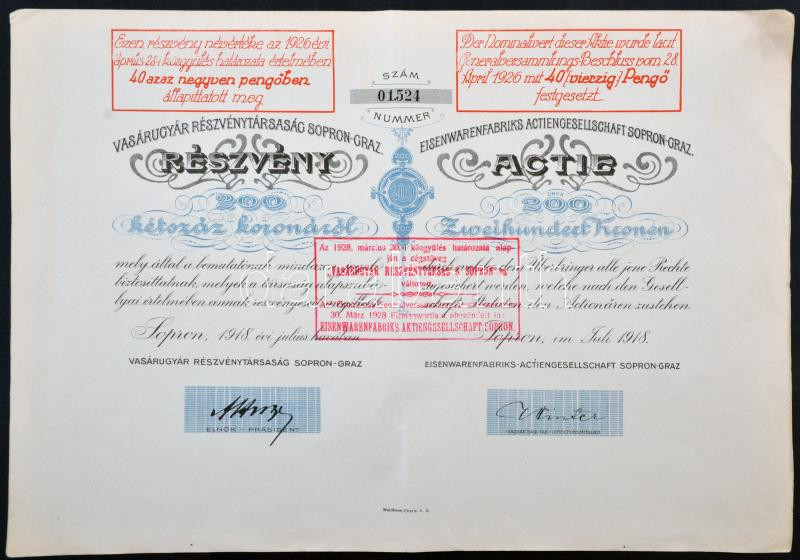 Ezen részvény névértéke az 1926 évi
április 28-i közgyülés határozata értelmében
40 azaz negyven pengőben
állapittatott meg.
Der Nominalwert dieser Aktie wurde laut
Generalversammlungs-Beschluss vom 28.
April 1926 mit 40 (vierzig) Pengő
festgesetzt.
SZÁM
01.524
NUMMER
VASÁRUGYÁR RÉSZVÉNYTÁRSASÁG SOPRON-GRAZ.
RÉSZVÉNY
200
kétszáz koronáról
EISENWARENFABRIKS ACTIENGESELLSCHAFT SOPRON-GRAZ.
ACTIE
ÜBER
200
Zweihundert Kronen
200
Az 1928. március 30.-i közgyülés határozata alap-
ján a cégszöveg
"VASÁRUGYÁR RÉSZVÉNYTÁRSASÁG SOPRON"-ra
30. März 1928 Firmawortlaut abgeändert in:
EISENWARENFABRIKS AKTIENGESELLSCHAFT SOPRON.
mely által a bemutatónak mindazon
biztosittatnak, melyek a társaság alapszabá-
lyai értelmében annak részvényeseit
dem Überbringer alle jene Rechte
zugesichert werden, welche nach den Gesell-
schafts-Statuten den Actionären zustehen
Sopron, 1918. évi július havában.
Sopron, im Juli 1918.
VASÁRUGYÁR RÉSZVÉNYTÁRSASÁG SOPRON-GRAZ
EISENWARENFABRIKS-ACTIENGESELLSCHAFT SOPRON-GRAZ
ELNÖK - PRÄSIDENT
Winter
Waldheim-Eberle A. G.